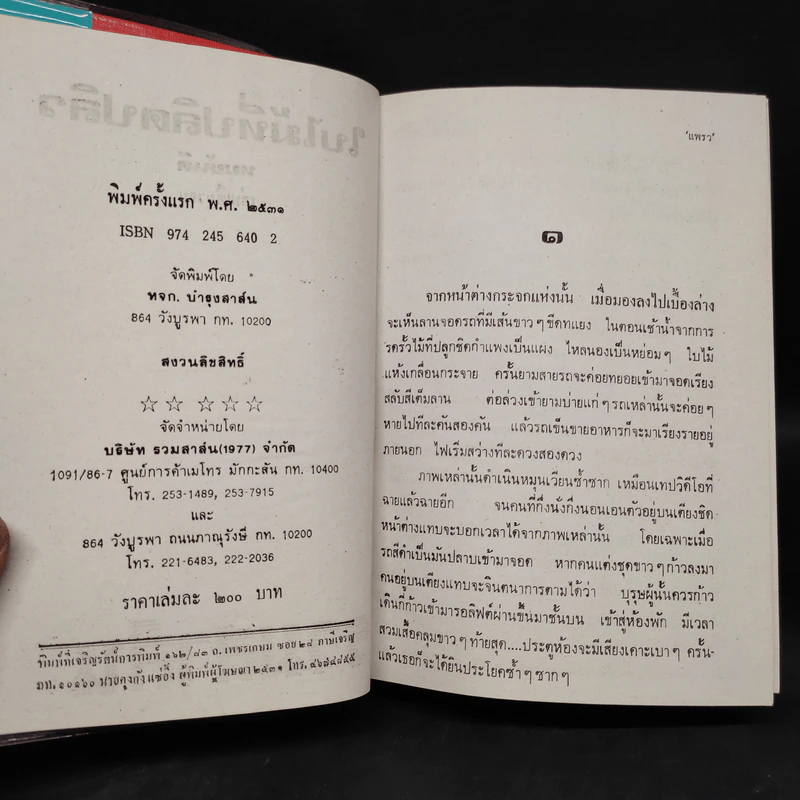 ใบไม้ที่ปลิดปลิว
ทมยันตี
พิมพ์ครั้งแรก พ.ศ. ๒๕๓๑
ISBN 974 245 640 2
จัดพิมพ์โดย
หจก. บำรุงสาส์น
864 วังบูรพา กท. 10200
สงวนลิขสิทธิ์
☆ ☆ ☆ ☆ ☆
จัดจำหน่ายโดย
บริษัท รวมสาส์น(1977) จำกัด
1091/86-7 ศูนย์การค้าเมโทร มักกะสัน กท. 10400
โทร. 253-1489, 253-7915
และ
864 วังบูรพา ถนนภาณุรังษี กท. 10200
โทร. 221-6483, 222-2036
ราคาเล่มละ ๒๐๐ บาท
พิมพ์ที่เจริญรัตน์การพิมพ์ ๑๖๒/๘๓ ถ. เพชรเกษม ซอย ๒๘ ภาษีเจริญ
กท. ๑๐๑๖๐ นายคุงกัง แซ่อึ้ง ผู้พิมพ์ผู้โฆษณา ๒๕๓๑ โทร. ๔๖๗๔๘๙๙
'แพรว'
๑
จากหน้าต่างกระจกแห่งนั้น เมื่อมองลงไปเบื้องล่าง
จะเห็นลานจอดรถที่มีเส้นขาวๆ ขีดทแยง ในตอนเช้าน้ำจากการ
รดรั้วไม้ที่ปลูกชิดกำแพงเป็นแผง ไหลนองเป็นหย่อมๆ ใบไม้
แห้งเกลื่อนกระจาย ครั้นยามสายรถจะค่อยทยอยเข้ามาจอดเรียง
สลับสีเต็มลาน ต่อล่วงเข้ายามบ่ายแก่ๆ รถเหล่านั้นจะค่อยๆ
หายไปทีละคันสองคัน แล้วรถเข็นขายอาหารก็จะมาเรียงรายอยู่
ภายนอก ไฟเริ่มสว่างทีละดวงสองดวง
ภาพเหล่านั้นดำเนินหมุนเวียนซ้ำซาก เหมือนเทปวิดีโอที่
ฉายแล้วฉายอีก จนคนที่กึ่งนั่งกึ่งนอนเอนตัวอยู่บนเตียงชิด
หน้าต่างแทบจะบอกเวลาได้จากภาพเหล่านั้น โดยเฉพาะเมื่อ
รถสีดำเป็นมันปลาบเข้ามาจอด หากคนแต่งชุดขาวๆ ก้าวลงมา
คนอยู่บนเตียงแทบจะจินตนาการตามได้ว่า บุรุษผู้นั้นควรก้าว
เดินกี่ก้าวเข้ามารอลิฟต์ผ่านขึ้นมาชั้นบน เข้าสู่ห้องพัก มีเวลา
สวมเสื้อคลุมขาวๆ ท้ายสุด....ประตูห้องจะมีเสียงเคาะเบาๆ ครั้น
แล้วเธอก็จะได้ยินประโยคซ้ำๆ ซากๆ